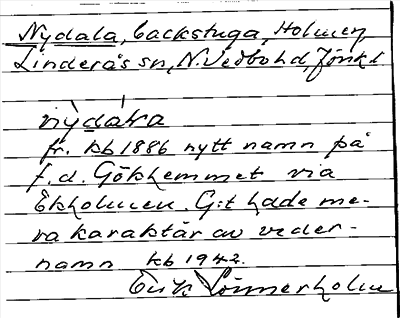 Nydala, backstuga, Holmen,
Linderås sn, N. Vedbo hd, Jönk l
nỳdáɫa
fr. kb 1886 nytt namn på
f.d. Gökhemmet via
Ekholmen. G:t hade me-
ra karaktär av veder-
namn kb 1942.
Erik Lönnerholm